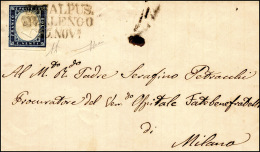 CASALPUS
TERLENGO
NOV
Al M. R. Padre Serafino Petracchi
Procuratore del Ven. Ospitale Fatebenefratelli
di
Milano